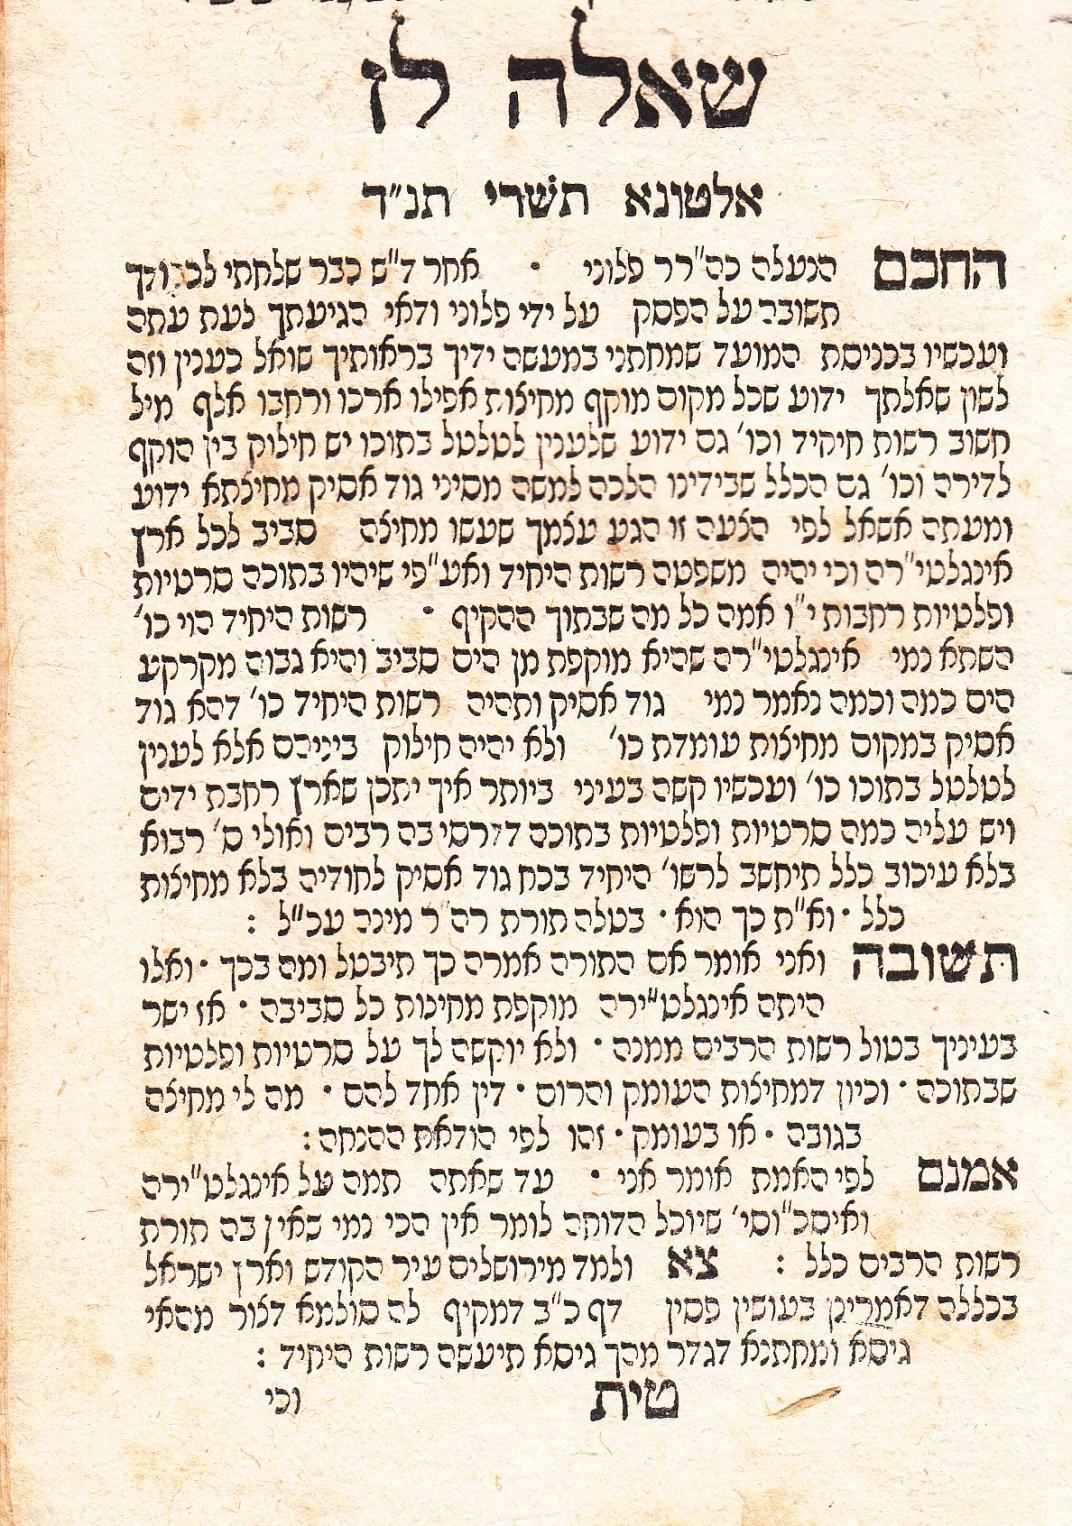 שאלה לז
אלטונא תשרי תנ״ד
החכם הנעלה כה״רר פלוני · אחר ד״ש כבר שלחתי לכבודך
תשובה על הפסק על ידי פלוני ודאי הגיעתך לעת עתה
ועכשיו בכניסת המועד שמחתני במעשה ידיך בראותיך שואל כענין וזה
לשון שאלתך ידוע שכל מקום מוקף מחיצות אפילו ארכו ורחבו אלף מיל
חשוב רשות היחיד וכו׳ גם ידוע שלענין לטלטל בתוכו יש חילוק בין הוקף
לדירה וכו׳ גם הכלל שבידינו הלכה למשה מסיני גוד אסיק מחיצתא ידוע
ומעתה אשאל לפי הצעה זו הגע עצמך שעשו מחיצה סביב לכל ארץ
אינגלטי״רה וכי יהיה משפטה רשות היחיד ואע״פי שיהיו בתוכה סרטיות
ופלטיות רחבות י״ו אמה כל מה שבתוך ההקיף · רשות היחיד הוי כו׳
השתא נמי אינגלטי״רה שהיא מוקפת מן הים סביב והיא גבוה מקרקע
הים כמה וכמה נאמר נמי גוד אסיק ותהיה רשות היחיד כו׳ דהא גוד
אסיק במקום מחיצות עומדת כו׳ ולא יהיה חילוק ביניהם אלא לענין
לטלטל בתוכו כו׳ ועכשיו קשה בעיני ביותר איך יתכן שארץ רחבת ידים
ויש עליה כמה סרטיות ופלטיות בתוכה דדרסי בה רבים ואולי ס׳ רבוא
בלא עיכוב כלל תיחשב לרשו׳ היחיד בכח גוד אסיק לחודיה בלא מחיצות
כלל · וא״ת כך הוא · בטלה תורת רה״ר מינה עכ״ל :
תשובה ואני אומר אם התורה אמרה כך תיבטל ומה בכך · ואלו
היתה אינגלט״ירה מוקפת מחיצות כל סביבה · אז ישר
בעיניך בטול רשות הרבים ממנה · ולא יוקשה לך על סרטיות ופלטיות
שבתוכה · וכיון דמחיצות העומק והרום · דין אחד להם · מה לי מחיצה
בגובה · או בעומק · זהו לפי הודאת ההנחה :
אמנם לפי האמת אומר אני · עד שאתה תמה על אינגלט״ירה
ואיסכ״וסי׳ שיוכל הדוחה לומר אין הכי נמי שאין בה תורת
רשות הרבים כלל : צא ולמד מירושלים עיר הקודש וארץ ישראל
בכללה דאמרינן בעושין פסין דף כ״ב דמקיף לה סולמא דצור מהאי
גיסא ומחתנא דגדר מהך גיסא תיעשה רשות היחיד :
טית וכי